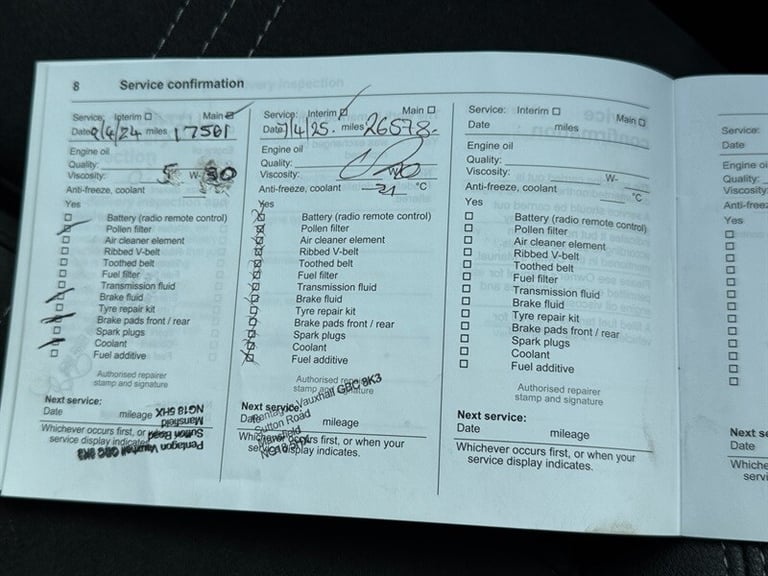 8 Service confirmation
Service: Interim Main
Date 9/4/24 miles 17561
Engine oil
Quality:
Viscosity: 5 W- 30
Anti-freeze, coolant
Yes
Battery (radio remote control)
Pollen filter
Air cleaner element
Ribbed V-belt
Toothed belt
Fuel filter
Transmission fluid
Brake fluid
Tyre repair kit
Brake pads front / rear
Spark plugs
Coolant
Fuel additive
Authorised repairer
stamp and signature
Next service:
Date mileage
Whichever occurs first, or
service display indicates.
Pentagon Vauxhall GBC 8K3
Sutton Road
Mansfield
NG18 5HX
Service: Interim Main
Date 7/4/25. miles 26578
Engine oil
Quality:
Viscosity: W-
Anti-freeze, coolant -21 °C
Yes
Battery (radio remote control)
Pollen filter
Air cleaner element
Ribbed V-belt
Toothed belt
Fuel filter
Transmission fluid
Brake fluid
Tyre repair kit
Brake pads front / rear
Spark plugs
Coolant
Fuel additive
Authorised repairer
stamp and signature
Pentagon Vauxhall GBC 8K3
Sutton Road
Mansfield
Next service:
Date mileage
Whichever occurs first, or when your
service display indicates.
Service: Interim Main
Date miles
Engine oil
Quality:
Viscosity: W-
Anti-freeze, coolant °C
Yes
Battery (radio remote control)
Pollen filter
Air cleaner element
Ribbed V-belt
Toothed belt
Fuel filter
Transmission fluid
Brake fluid
Tyre repair kit
Brake pads front / rear
Spark plugs
Coolant
Fuel additive
Authorised repairer
stamp and signature
Next service:
Date mileage
Whichever occurs first, or when your
service display indicates.
Service:
Date
Engine oil
Quality:
Viscosity:
Yes
Date